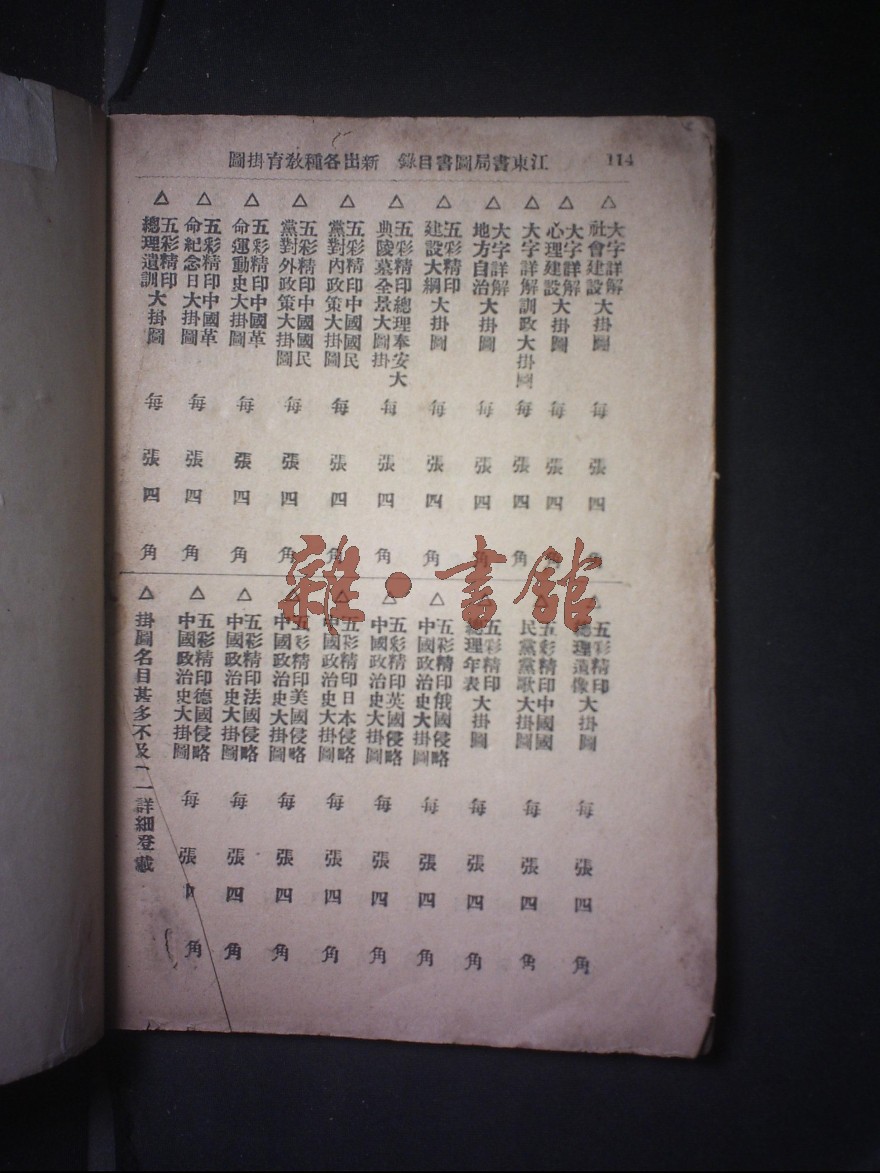 114
江東書局圖書目錄 新出各種教育掛圖
△大字詳解社會建設大掛圖 每張四角
△大字詳解心理建設大掛圖 每張四角
△大字詳解訓政大掛圖 每張四角
△大字詳解地方自治大掛圖 每張四角
△五彩精印建設大綱大掛圖 每張四角
△五彩精印總理奉安大典陵墓全景大圖掛 每張四角
△五彩精印中國國民黨對內政策大掛圖 每張四角
△五彩精印中國國民黨對外政策大掛圖 每張四角
△五彩精印中國革命運動史大掛圖 每張四角
△五彩精印中國革命紀念日大掛圖 每張四角
△五彩精印總理遺訓大掛圖 每張四角
△五彩精印總理遺像大掛圖 每張四角
△五彩精印中國國民黨黨歌大掛圖 每張四角
△五彩精印總理年表大掛圖 每張四角
△五彩精印俄國侵略中國政治史大掛圖 每張四角
△五彩精印英國侵略中國政治史大掛圖 每張四角
△五彩精印日本侵略中國政治史大掛圖 每張四角
△五彩精印美國侵略中國政治史大掛圖 每張四角
△五彩精印法國侵略中國政治史大掛圖 每張四角
△五彩精印德國侵略中國政治史大掛圖 每張四角
△掛圖名目甚多不及一一詳細登載
雜·書館